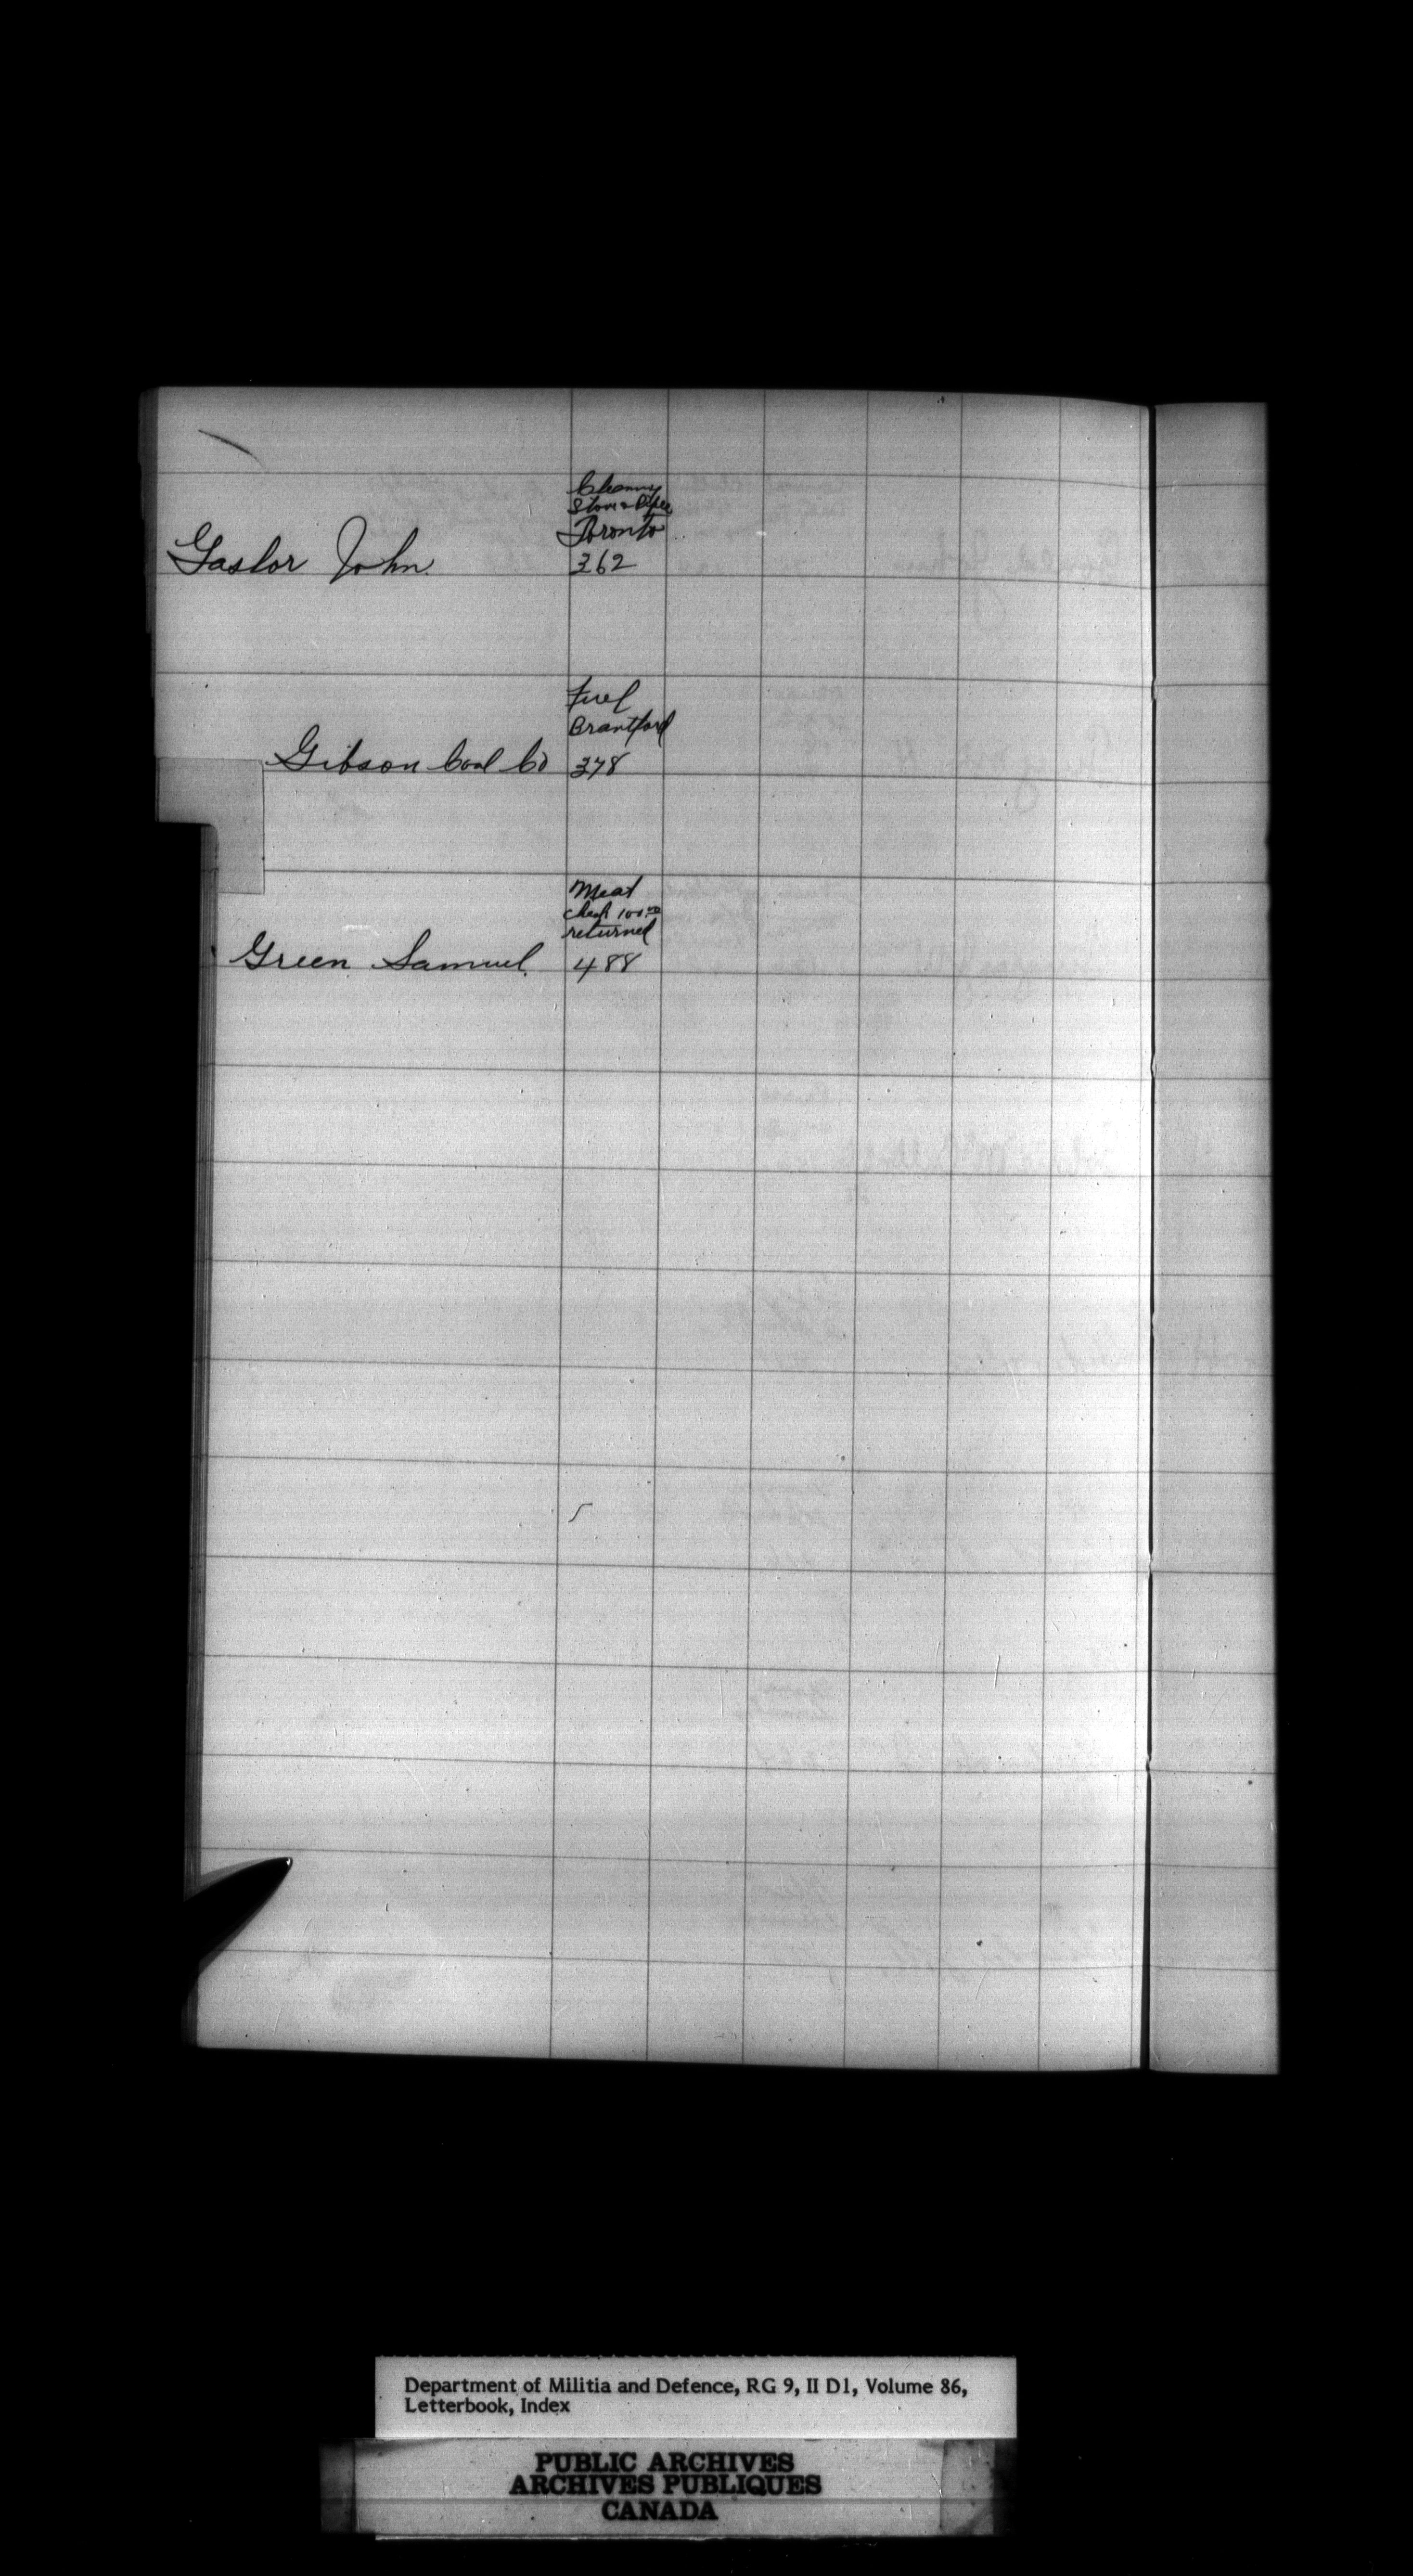 Cleaning
Stove & Pipes
Toronto
Gaslor John. 362
Fuel
Brantford
Gibson Coal Co 378
Meat
cheq 100.00
returned
Green Samuel. 488
Department of Militia and Defence, RG 9, II D1, Volume 86,
Letterbook, Index
PUBLIC ARCHIVES
ARCHIVES PUBLIQUES
CANADA